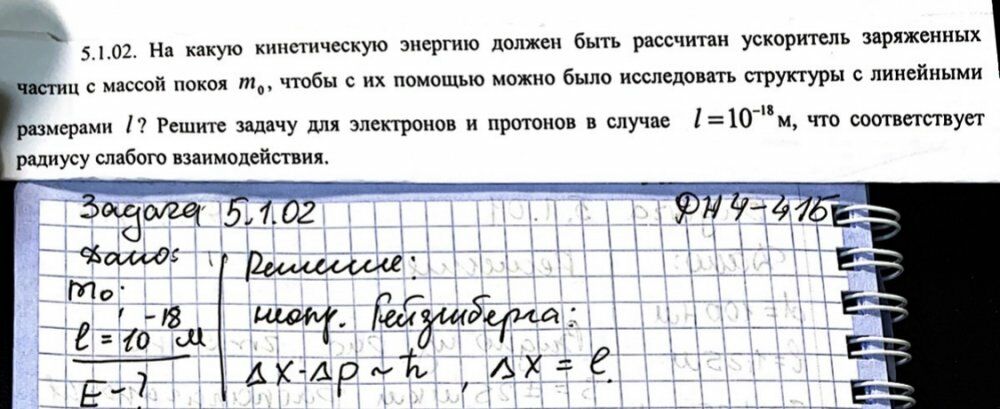 5.1.02. На какую кинетическую энергию должен быть рассчитан ускоритель заряженных
частиц с массой покоя m₀, чтобы с их помощью можно было исследовать структуры с линейными
размерами l? Решите задачу для электронов и протонов в случае l = 10⁻¹⁸ м, что соответствует
радиусу слабого взаимодействия.
Задача 5.1.02 ФН4-41Б
Дано: Решение:
m₀;
l = 10⁻¹⁸ м
E - ?
неопр. Гейзенберга:
Δx·Δp ~ ħ, Δx = l.